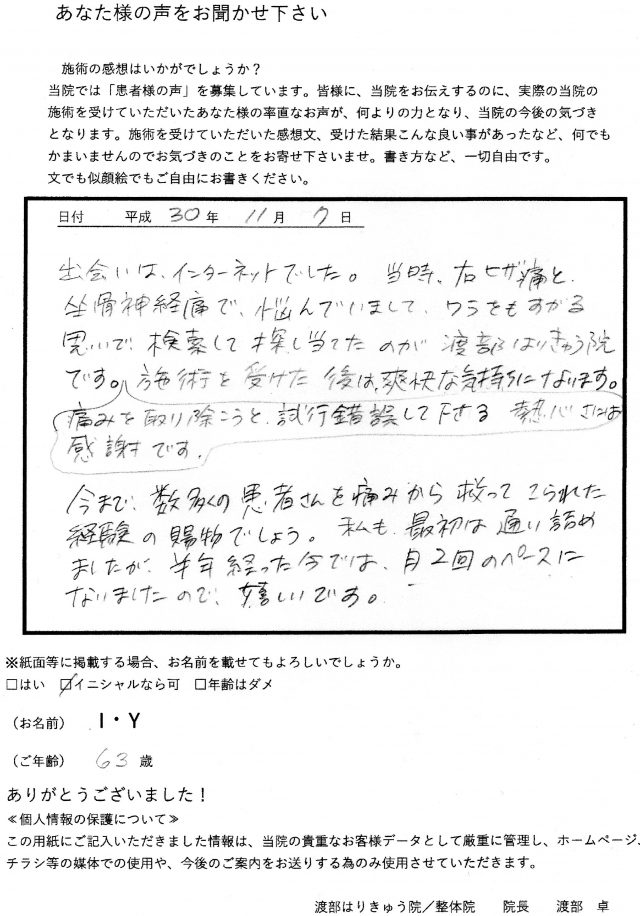 あなた様の声をお聞かせ下さい
施術の感想はいかがでしょうか？
当院では「患者様の声」を募集しています。皆様に、当院をお伝えするのに、実際の当院の
施術を受けていただいたあなた様の率直なお声が、何よりの力となり、当院の今後の気づき
となります。施術を受けていただいた感想文、受けた結果こんな良い事があったなど、何でも
かまいませんのでお気づきのことをお寄せ下さいませ。書き方など、一切自由です。
文でも似顔絵でもご自由にお書きください。
日付 平成 30年 11月 7日
出会いは、インターネットでした。当時、右ヒザ痛と、
坐骨神経痛で、悩んでいまして、ワラをもすがる
思いで、検索して探し当てたのが渡部はりきゅう院
です。施術を受けた後は、爽快な気持ちになります。
痛みを取り除こうと、試行錯誤して下さる熱心さには
感謝です。
今まで、数多くの患者さんを痛みから救ってこられた
経験の賜物でしょう。私も、最初は通い詰め
ましたが、半年経った今では、月2回のペースに
なりましたので、嬉しいです。
※紙面等に掲載する場合、お名前を載せてもよろしいでしょうか。
□はい ☑イニシャルなら可 □年齢はダメ
（お名前） I・Y
（ご年齢） 63歳
ありがとうございました！
≪個人情報の保護について≫
この用紙にご記入いただきました情報は、当院の貴重なお客様データとして厳重に管理し、ホームページ、
チラシ等の媒体での使用や、今後のご案内をお送りする為のみ使用させていただきます。
渡部はりきゅう院／整体院 院長 渡部 卓